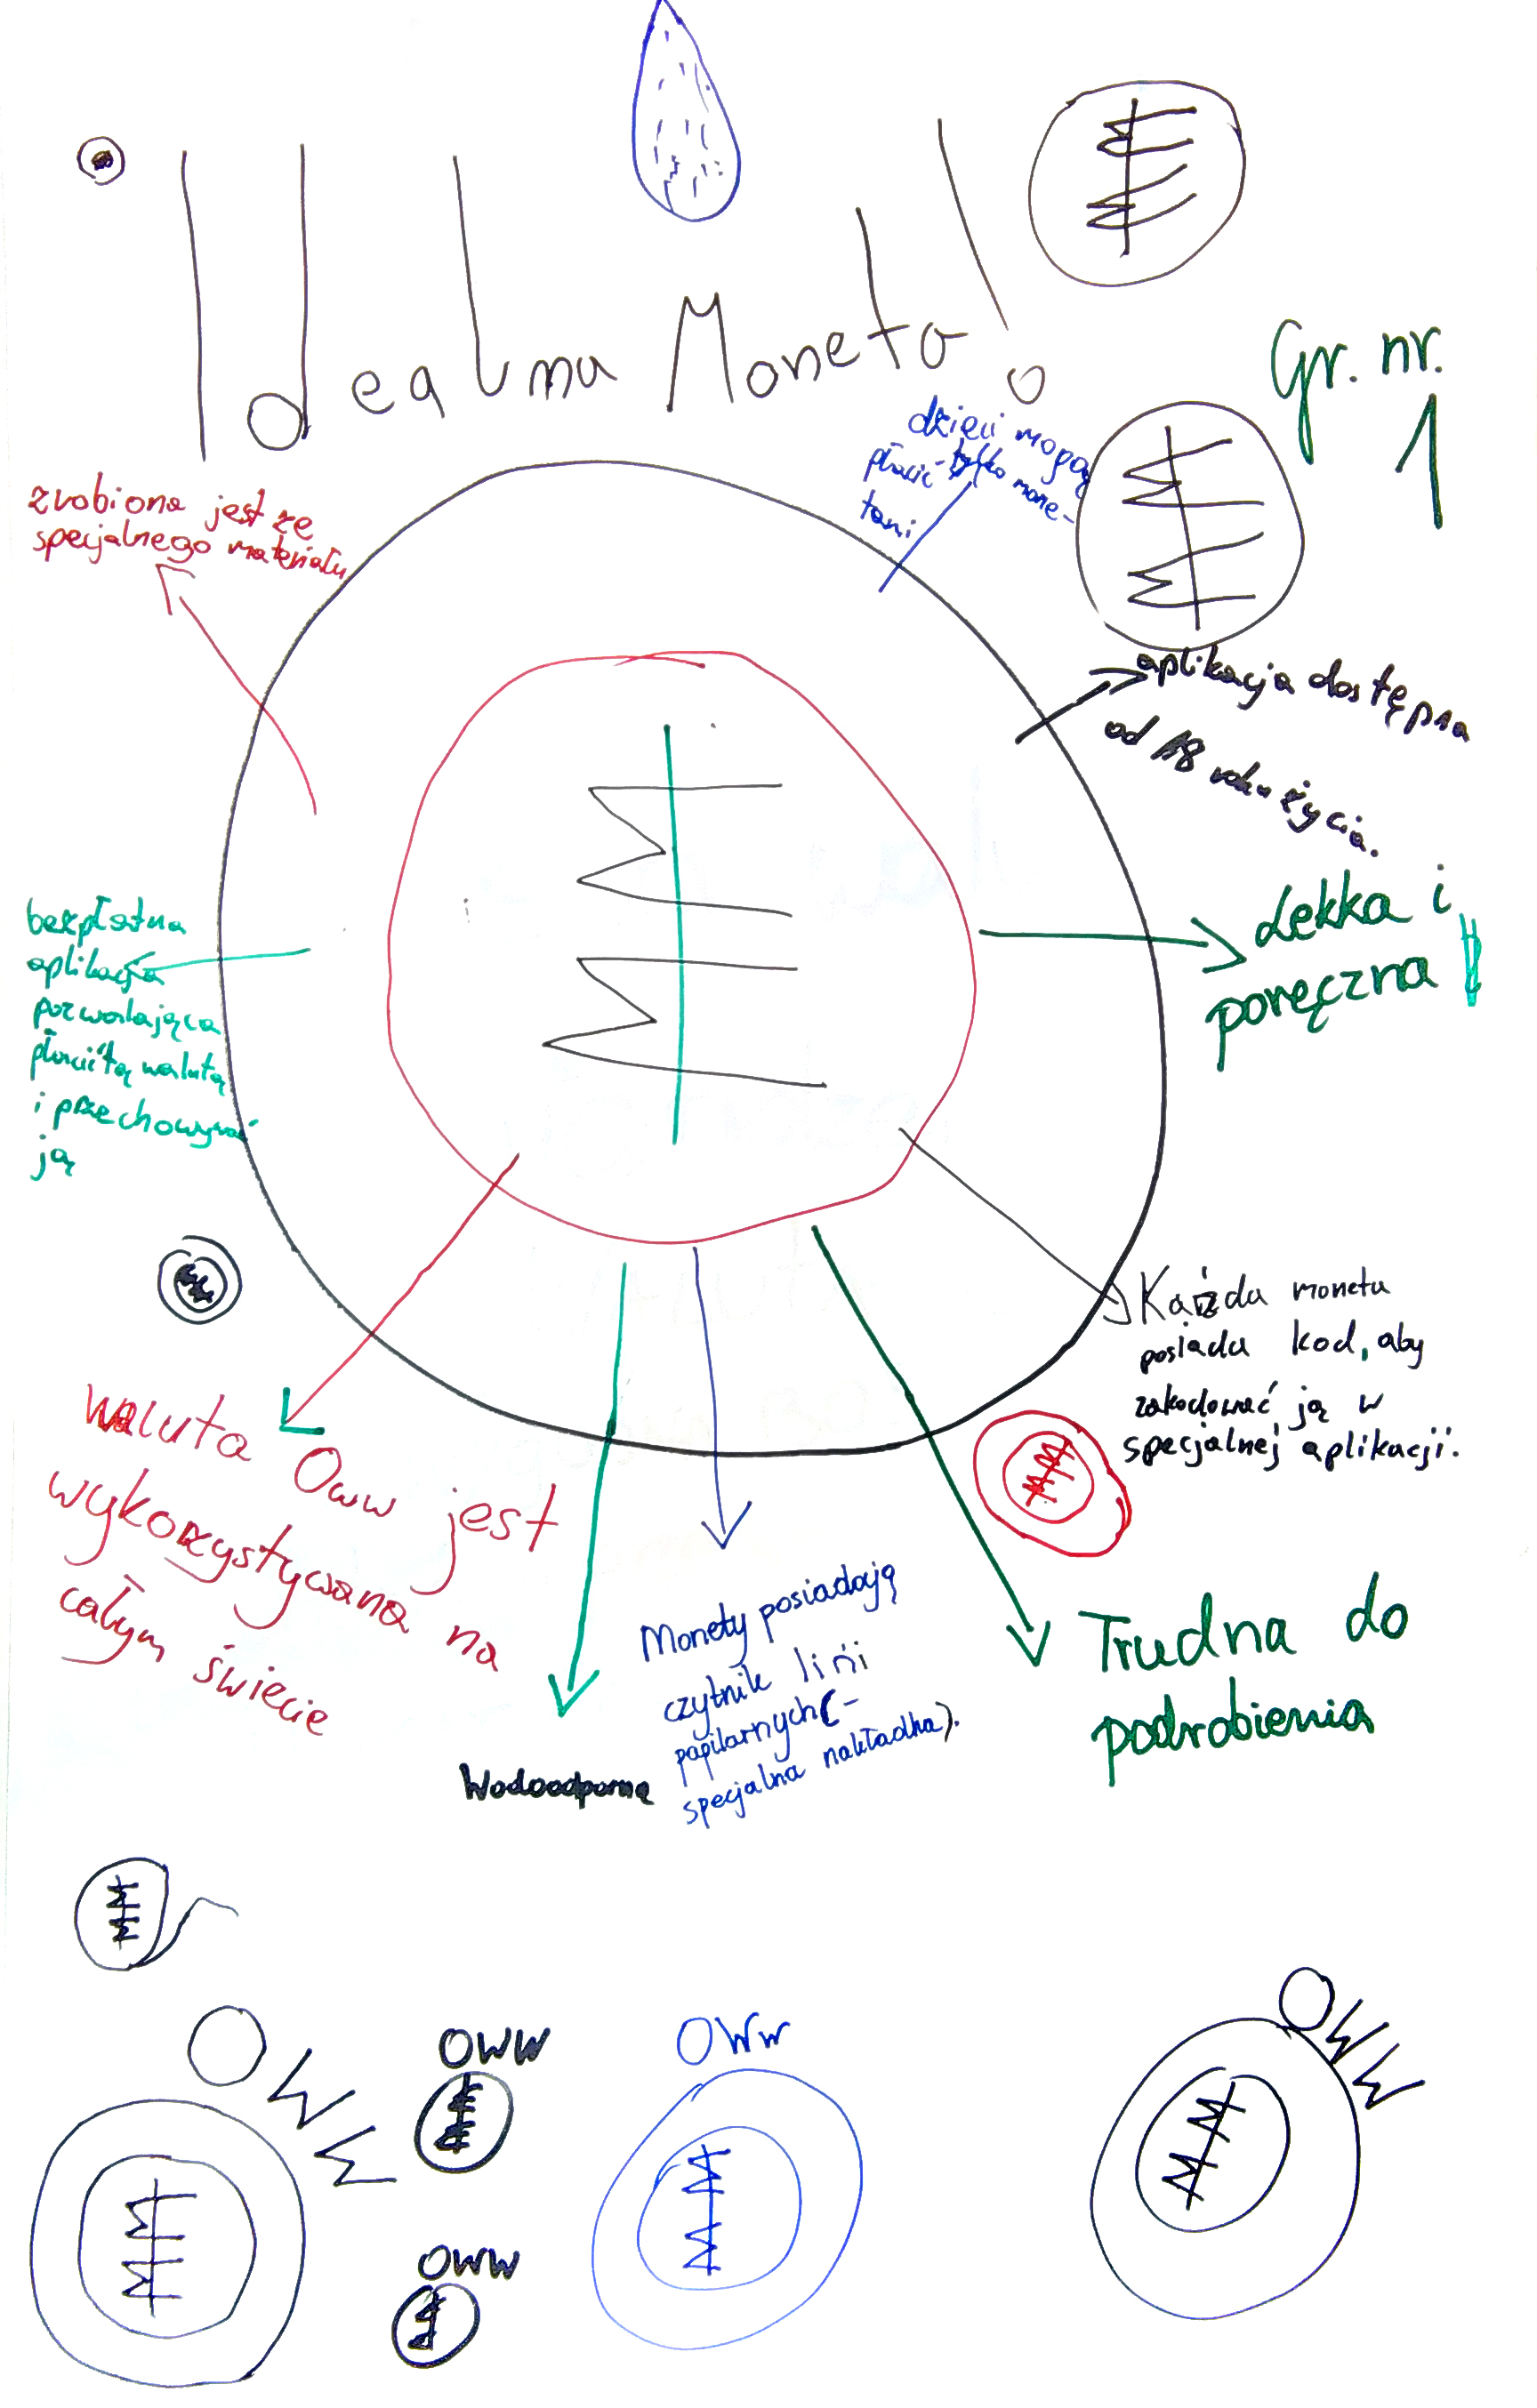 Idealna Moneta!
Gr. nr.
1
dzieci mogą
płacić tylko mone-
tami
zrobiona jest ze
specjalnego materiału
aplikacja dostępna
od 18 roku życia.
Lekka i
poręczna
bezpłatna
aplikacja
pozwalająca
płacić tą walutą
i przechowywać
ją
Każda moneta
posiada kod, aby
zakodować ją w
specjalnej aplikacji.
Waluta Oww jest
wykorzystywana na
całym świecie
Monety posiadają
czytnik linii
papilarnych (-
specjalna nakładka).
Trudna do
podrobienia
Wodoodporna
OWW
OWW
OWW
OWW
OWW